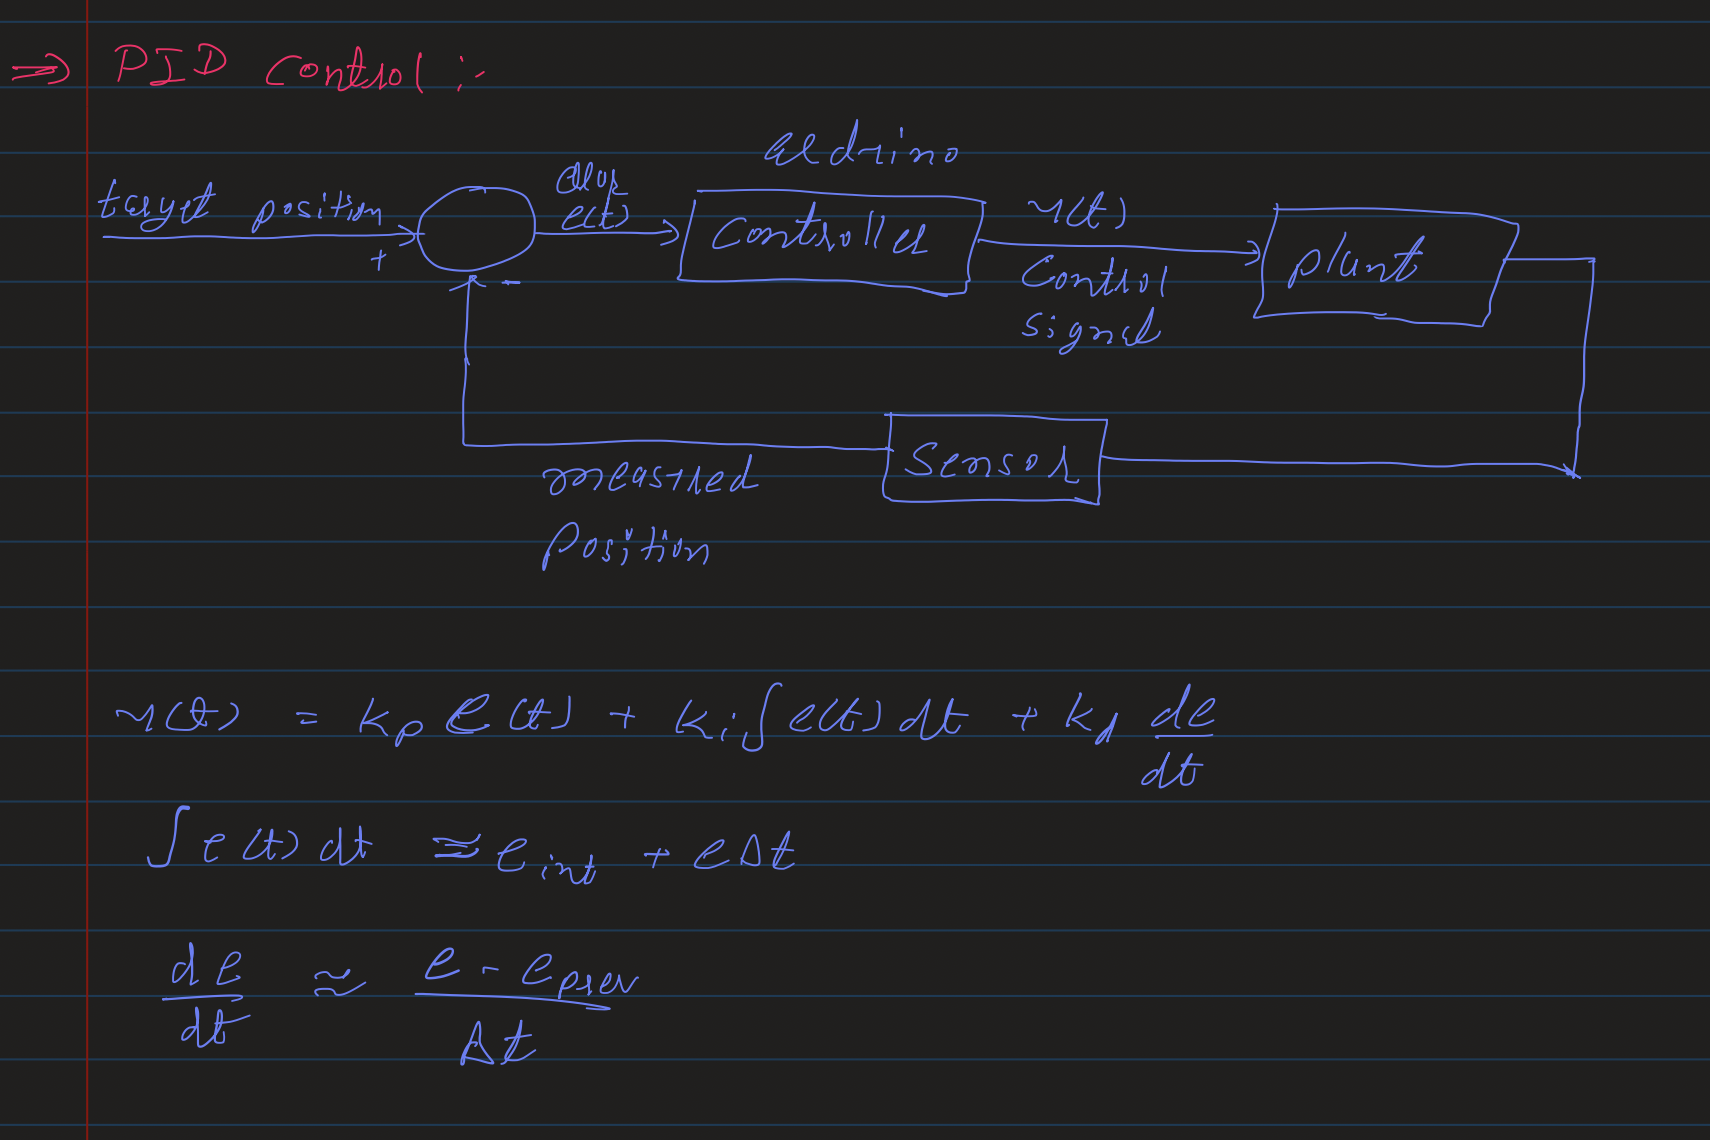 ⇒ PID Control :-
aldrino
target position
+
error
e(t)
Controller
u(t)
Control
signal
plant
-
Sensor
measured
Position
u(t) = Kp e(t) + Ki ∫ e(t) dt + Kd de/dt
∫ e(t) dt ≈ e int + e Δt
de/dt ≈ (e - e prev)/Δt